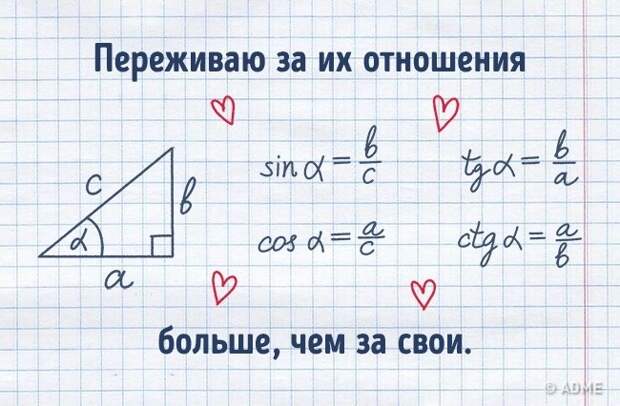 Переживаю за их отношения
sin α = b/c
tg α = b/a
c
b
α
a
cos α = a/c
ctg α = a/b
больше, чем за свои.
© ADME